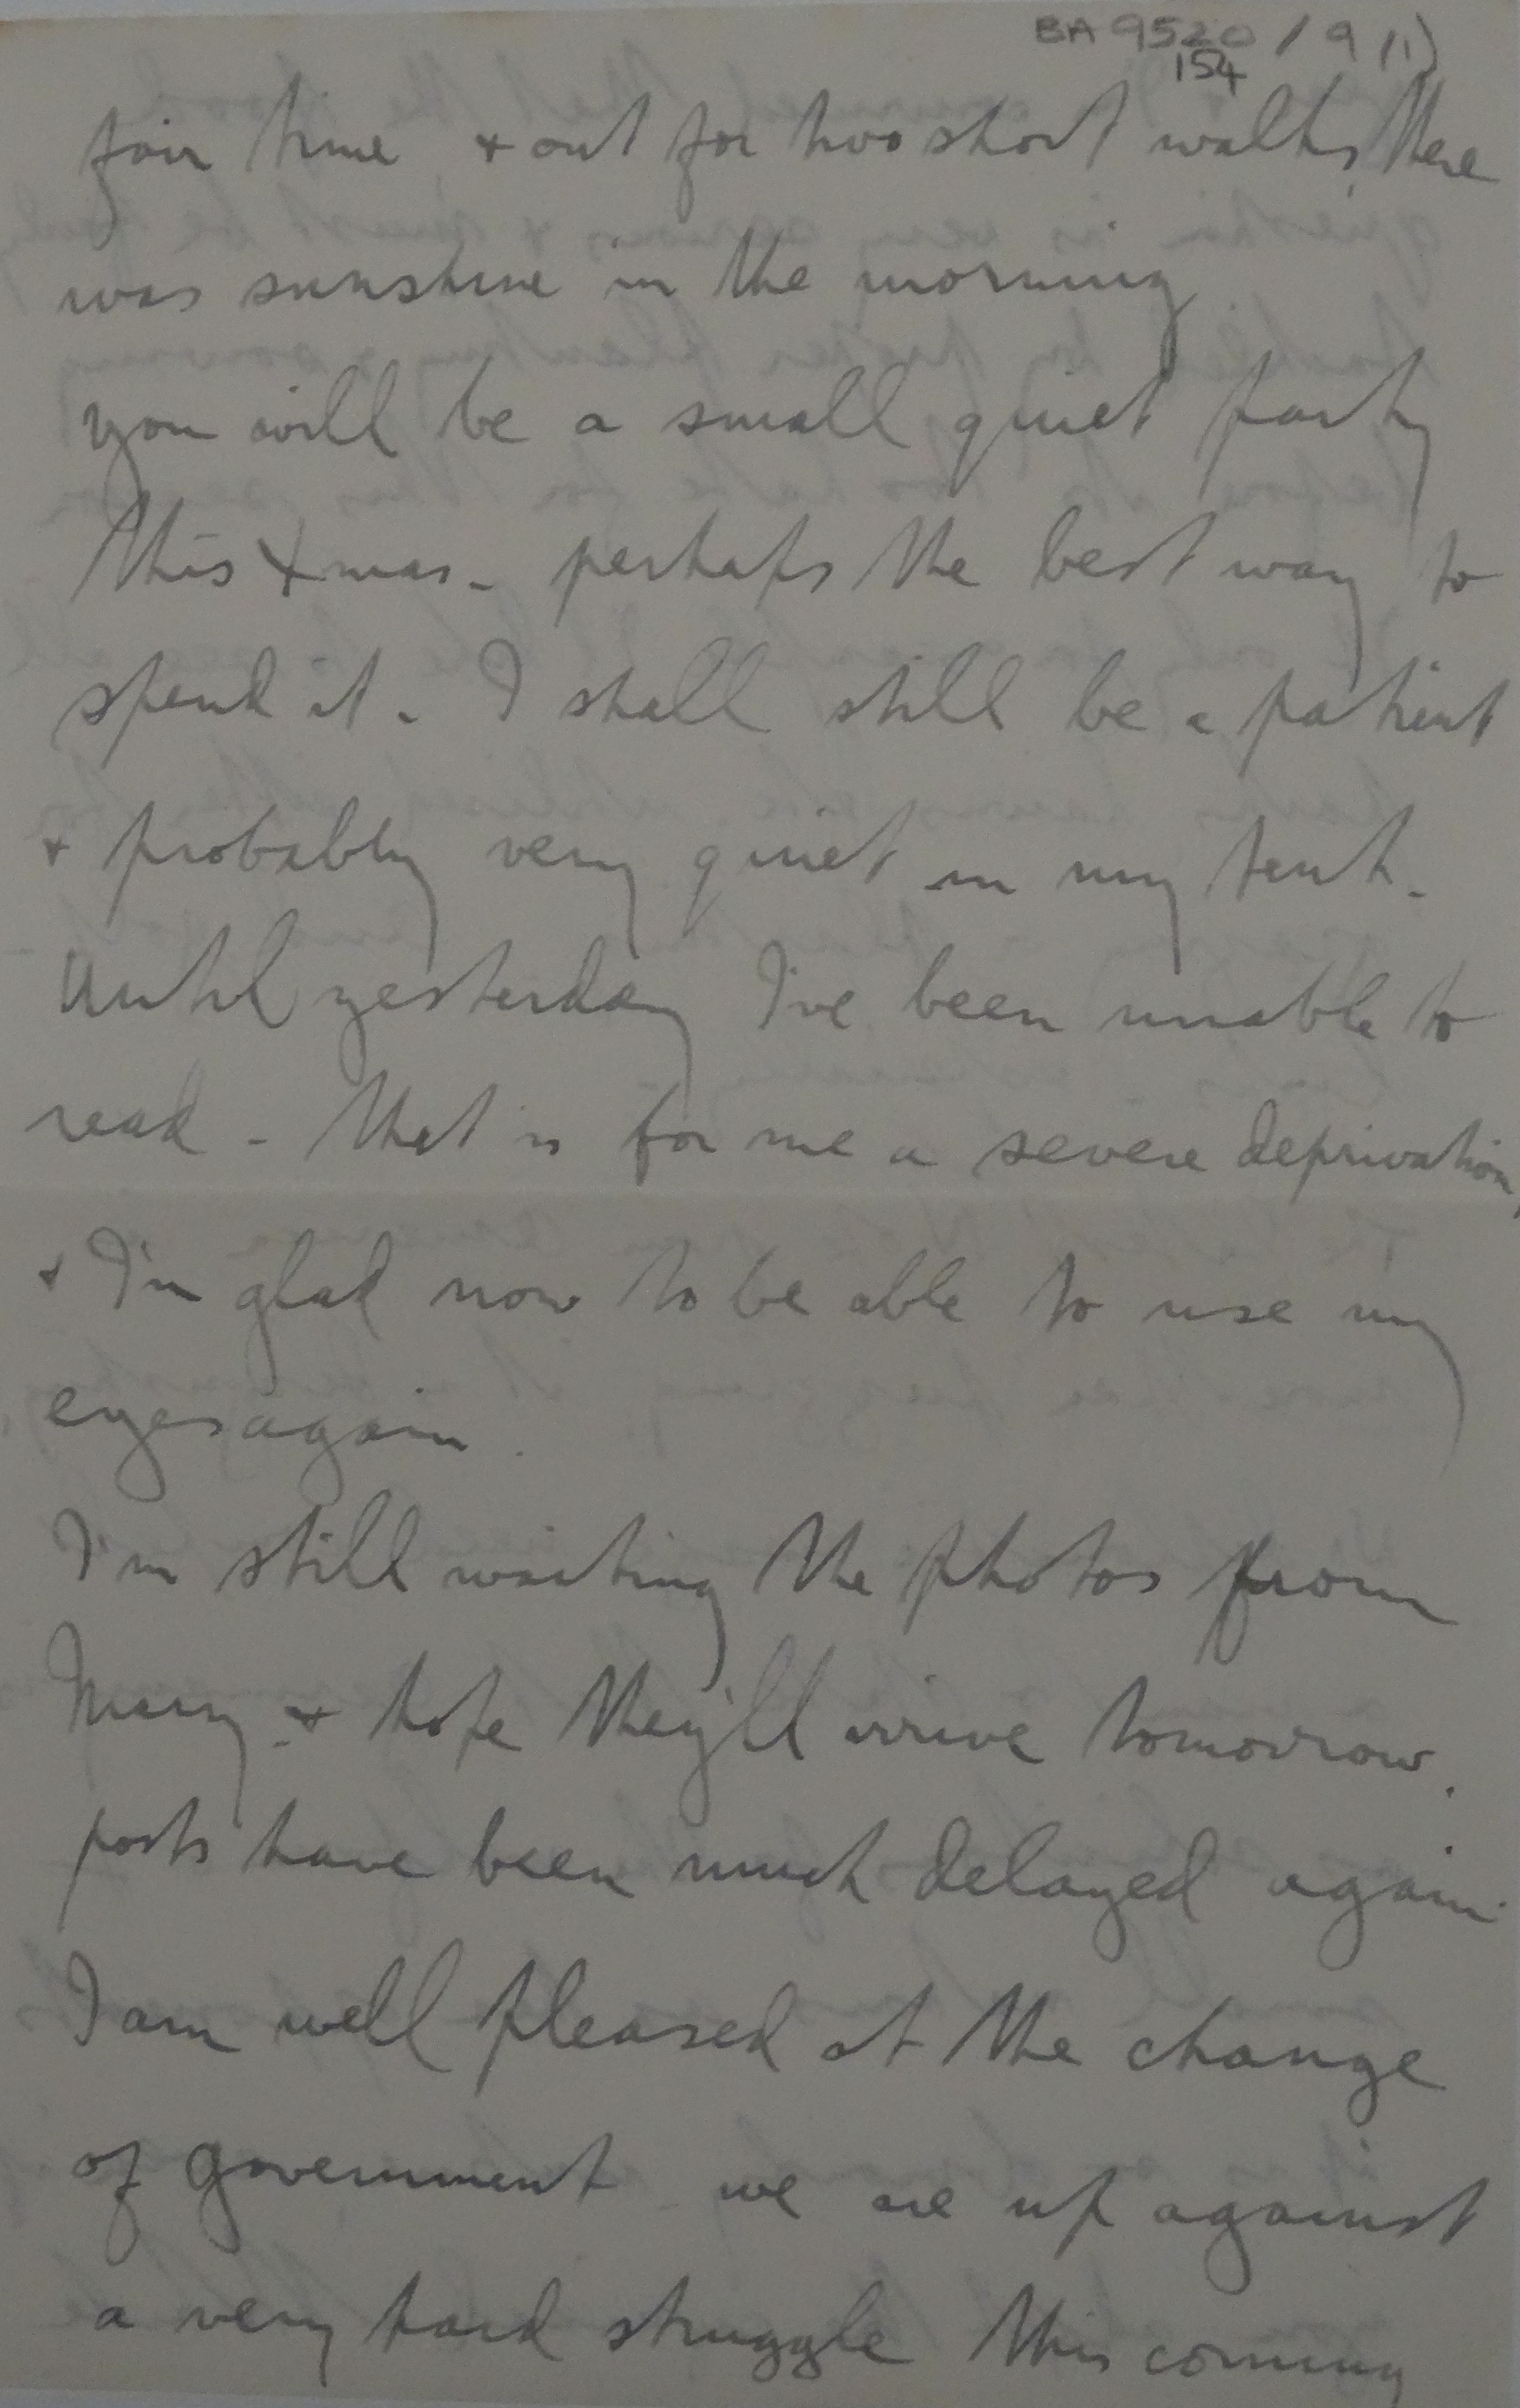 BA 9520 / 9 (1)
154
fair time & out for two short walks, there
was sunshine in the morning
you will be a small quiet party
this Xmas - perhaps the best way to
spend it. I shall still be a patient
& probably very quiet in my tent.
Until yesterday I've been unable to
read - that is for me a severe deprivation,
& I'm glad now to be able to use my
eyes again.
I'm still waiting the photos from
Mary - & hope they'll arrive tomorrow.
posts have been much delayed again.
I am well pleased at the change
of government we are up against
a very hard struggle this coming